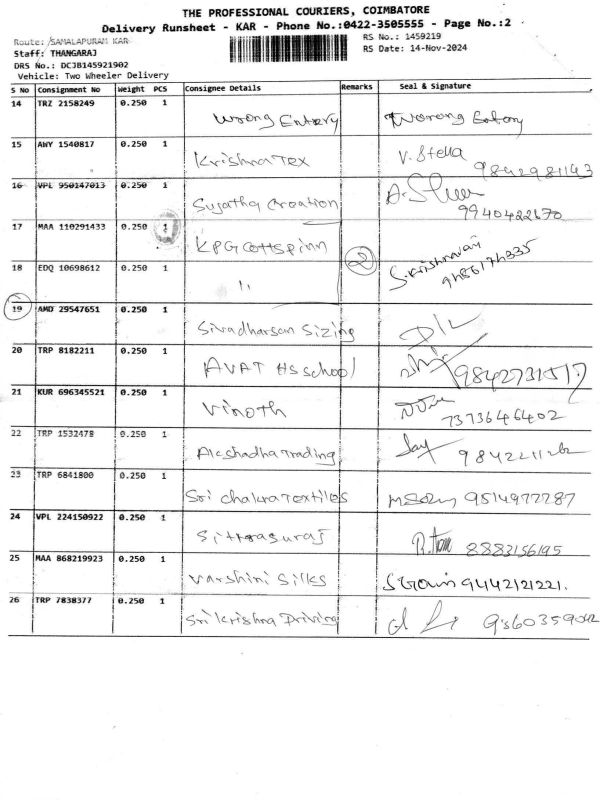 THE PROFESSIONAL COURIERS, COIMBATORE
Delivery Runsheet - KAR - Phone No.:0422-3505555 - Page No.:2
Route: SAMALAPURAM KAR RS No.: 1459219
Staff: THANGARAJ RS Date: 14-Nov-2024
DRS No.: DCJB145921902
Vehicle: Two Wheeler Delivery
S No Consignment No Weight PCS Consignee Details Remarks Seal & Signature
14 TRZ 2158249 0.250 1 Wrong Entery Worong Entery
15 AWY 1540817 0.250 1 Krishna Tex V. Stella 9842981143
16 VPL 950147013 0.250 1 Sujatha Creation 9940422670
17 MAA 110291433 0.250 1 KPG Cottspinn 2 S. Krishnavani
18 EDQ 10698612 0.250 1 "
19 AMD 29547651 0.250 1 Sivadharsan Sizing D/L
20 TRP 8182211 0.250 1 AVAT HS school
21 KUR 696345521 0.250 1 Vinoth 7373646402
22 TRP 1532478 0.250 1 Akshadha Trading
23 TRP 6841800 0.250 1 Sri chakra Textiles 9514977287
24 VPL 224150922 0.250 1 8883156195
25 MAA 868219923 0.250 1 Varshini Silks 9442121221.
26 TRP 7838377 0.250 1 Sri Krishna Driving